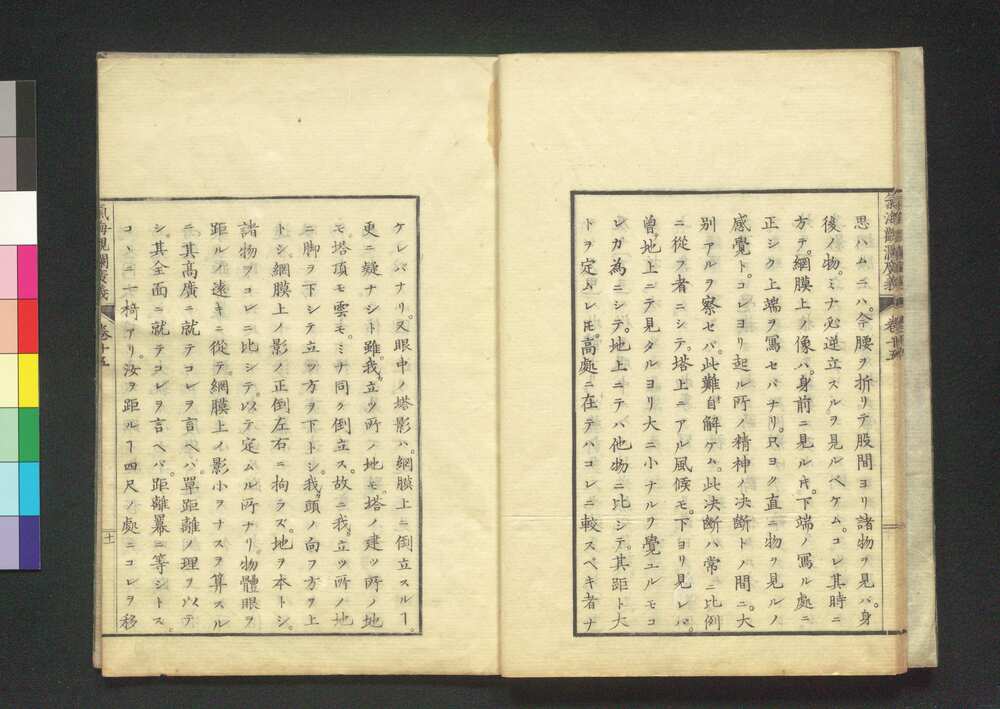 思ハムニハ。今腰ヲ折リテ股間ヨリ諸物ヲ見バ。身
後ノ物。ミナ必逆立スルヲ見ルベケム。コレ其時ニ
方テ。網膜上ノ像ハ。身前ニ見ルキ。下端ノ寫ル處ニ
正シク上端ヲ寫セバナリ。只ヨク直ニ物ヲ見ルノ
感覺ト。コレヨリ起ル所ノ精神ノ決斷トノ間ニ。大
別アルヲ察セバ。此難自解ケム。此決斷ハ常ニ比例
ニ從フ者ニシテ。塔上ニアル風候モ。下ヨリ見レバ。
曾地上ニテ見タルヨリ大ニ小ナルヲ覺ユルモコ
レガ為ニシテ。地上ニテハ他物ニ比シテ。其距ト大
トヲ定ムレ𪜈。高處ニ在テハコレニ較スベキ者ナ
ケレバナリ。又眼中ノ塔影ハ。網膜上ニ倒立スルヿ。
更ニ疑ナシト雖。我立ツ所ノ地モ。塔ノ建ツ所ノ地
モ塔頂モ雲モ。ミナ同ク倒立ス。故ニ我立ツ所ノ地
ニ脚ヲ下シテ立ツ方ヲ下トシ。我頭ノ向フ方ヲ上
トシ。網膜上ノ影ノ正倒左右ニ拘ラズ。地ヲ本トシ。
諸物ヲコレニ比シテ。以テ定ムル所ナリ。物體眼ヲ
距ルノ遠キニ從テ。網膜上ノ影小ヲナスヲ算スル
ニ。其高廣ニ就テコレヲ言ヘバ。單距離ノ理ヲ以テ
シ。其全面ニ就テコレヲ言ヘバ。距離羃ニ等シトス。
コヽニ一椅アリ。汝ヲ距ルヿ四尺ノ處ニコレヲ移
氣海觀瀾廣義
卷十五
十